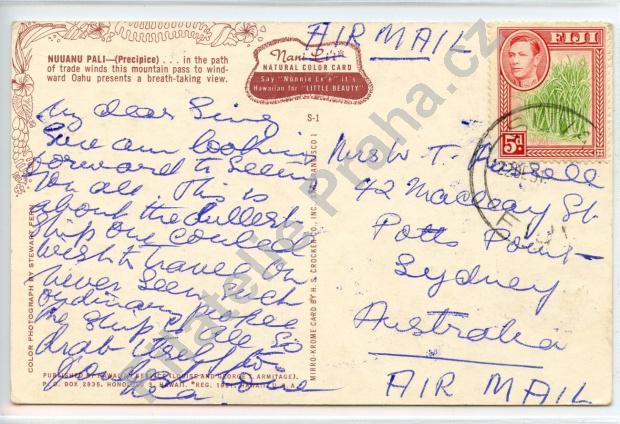 NUUANU PALI—(Precipice) . . . in the path
of trade winds this mountain pass to wind-
ward Oahu presents a breath-taking view.
Nani Li'i
NATURAL COLOR CARD
Say "Nonnie Lee" it's
Hawaiian for "LITTLE BEAUTY"
S-1
AIR MAIL
FIJI
5d
My dear
am looking
forward to seeing
you all This is
about the dullest
ship one could
wish to travel on
never seen such
ordinary people
the ship is all so
drab
Mrs W. T.
42 Macleay St.
Potts Point
Sydney
Australia
AIR MAIL
COLOR PHOTOGRAPH BY STEWART FERN
MIRRO-KROME CARD BY H. S. CROCKER CO., INC., SAN FRANCISCO 1
PUBLISHED BY HAWAIIAN SERVICE (LOUISE AND GEORGE T. ARMITAGE),
P.O. BOX 2835, HONOLULU 3, HAWAII.
Filatelie Praha.cz